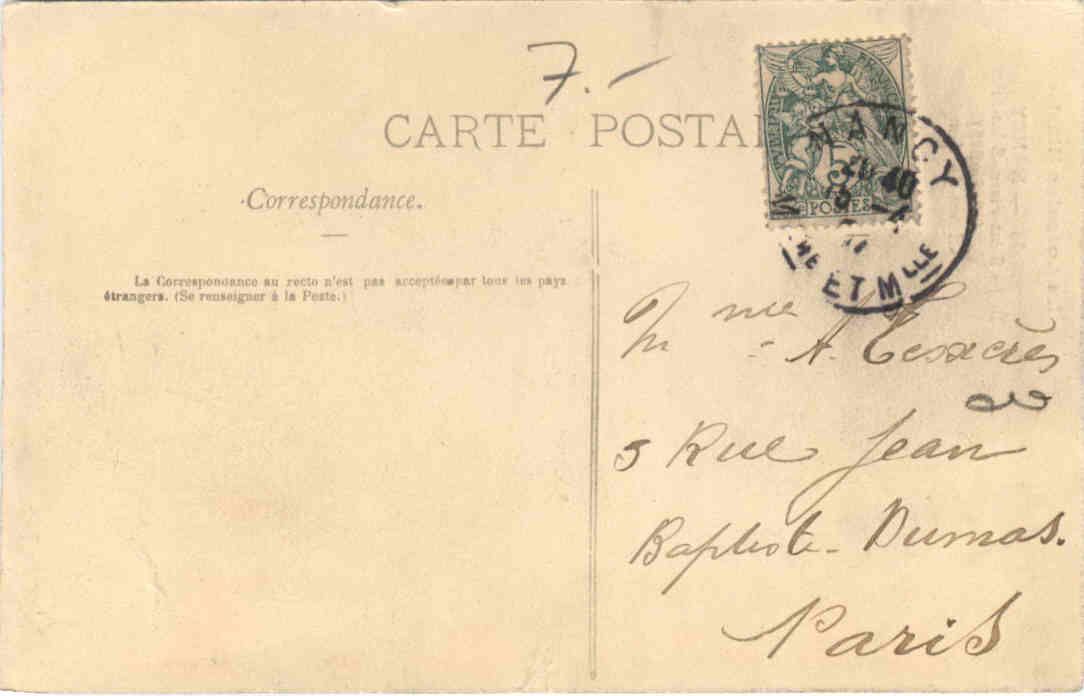 7.-
CARTE POSTA
Correspondance.
La Correspondance au recto n'est pas acceptée par tous les pays
étrangers. (Se renseigner à la Poste.)
5
POSTES
NANCY
20 40
ET MLLE
Mme A.
5 Rue Jean
Baptiste-Dumas.
Paris